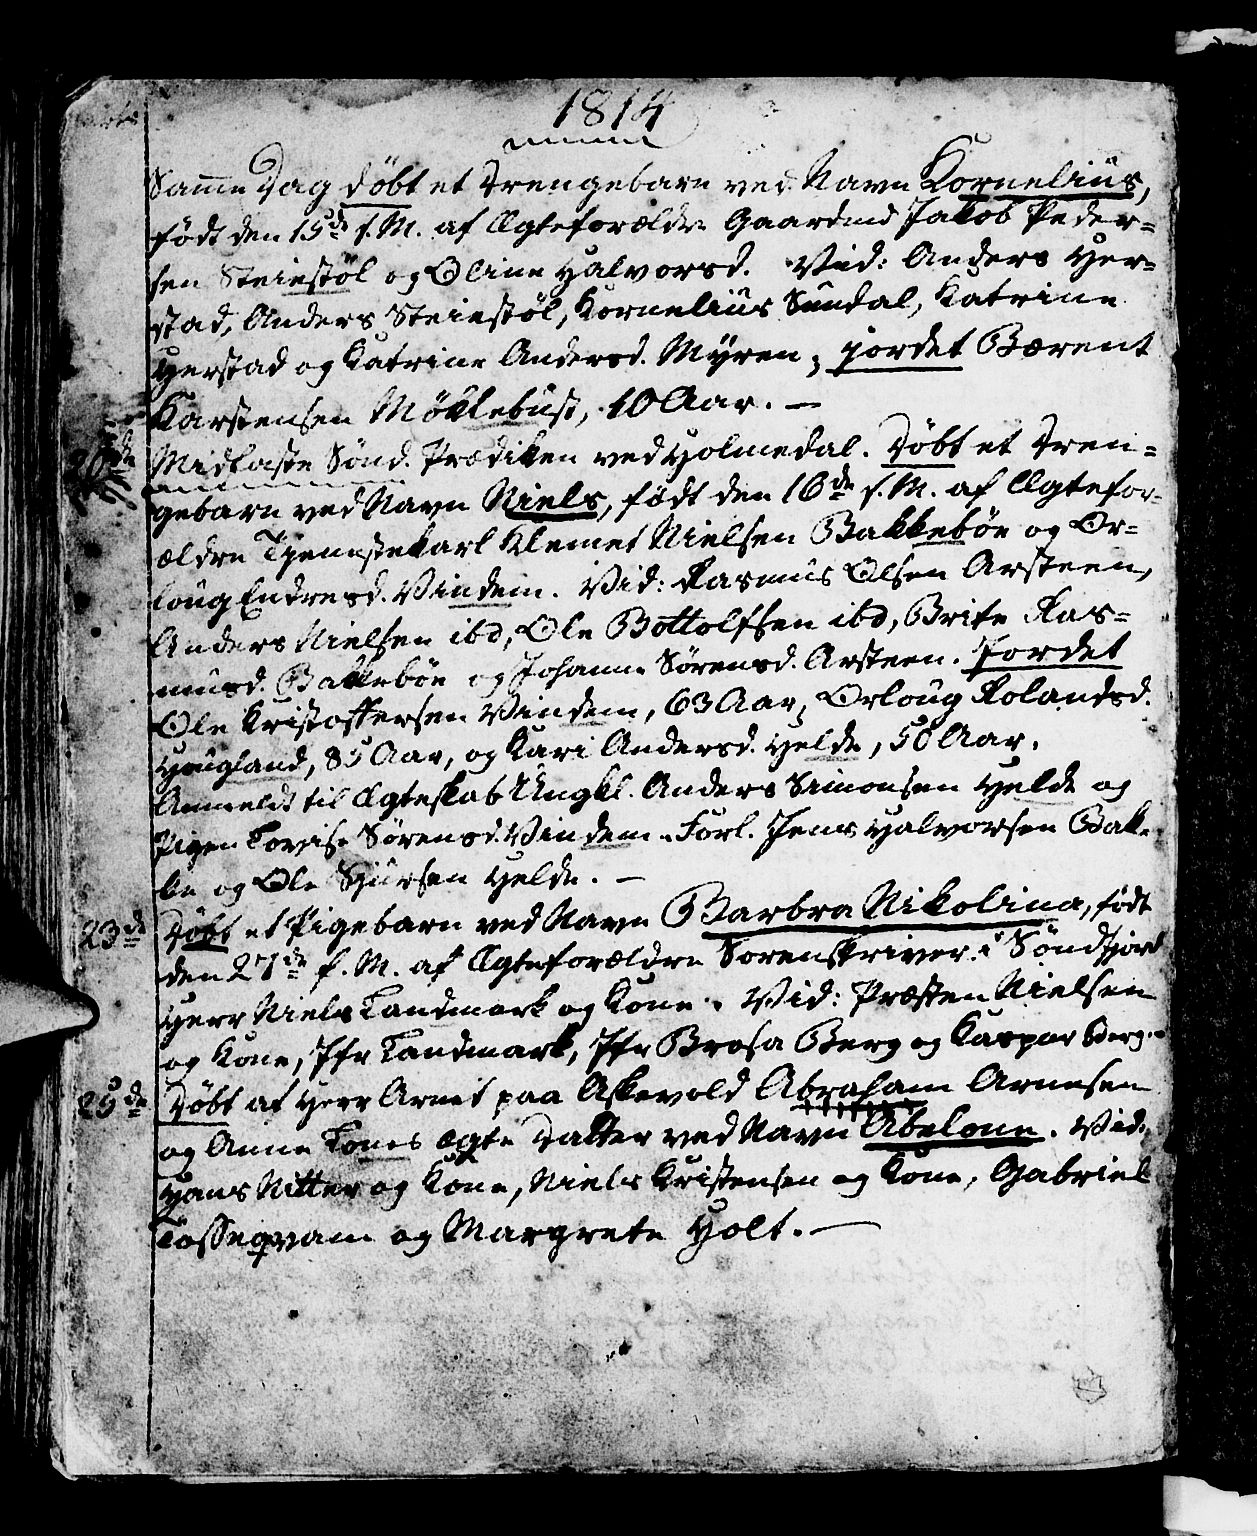 1814
Samme Dag döbt et Drengebarn ved Navn Kornelius,
födt den 15de s. M. af Ægteforældre Gaardmd Jakob Peder-
sen Steiestöl og Oline Halvorsd. Vid: Anders Her-
stad, Anders Steiestöl, Kornelius Sundal, Katrine
Herstad og Katrine Andersd. Myren; jordet Bærent
Karstensen Möklebust, 10 Aar. —
20de Midfaste Sönd. Prædiken ved Holmedal. Döbt et Dren-
gebarn ved Navn Niels, födt den 16de s. M. af Ægtefor-
ældre Tjenestekarl Klemet Nielsen Bakkeböe og Or-
loug Endresd. Vindem. Vid: Rasmus Olsen Arsteen,
Anders Nielsen ibd, Ole Bottolfsen ibd, Brite Ras-
musd. Bakkeböe og Johanne Sörensd. Arsteen. Jordet
Ole Kristoffersen Vindem, 63 Aar, Orloug Rolandsd.
Hougland, 85 Aar, og Kari Andersd. Helde, 50 Aar.
Anmeldt til Ægteskab Ungkl. Anders Simonsen Helde og
Pigen Lovise Sörensd. Vindem. Forl. Jens Halvorsen Bak-
ke og Ole Sjursen Helde. —
23de Döbt et Pigebarn ved Navn Barbra Nikolina, födt
den 27de f. M. af Ægteforældre Sorenskriver i Söndfjord
Herr Niels Landmark og Kone. Vid: Præsten Nielsen
og Kone, Jfr Landmark, Jfr Brosa Berg og Kaspar Berg.
25de Döbt af Herr Arnet paa Askevold Abraham Arnesen
og Anne Lones ægte Datter ved Navn Abelone. Vid:
Hans Nitter og Kone, Niels Kristensen og Kone, Gabriel
Losseqvam og Margrete Holt. —